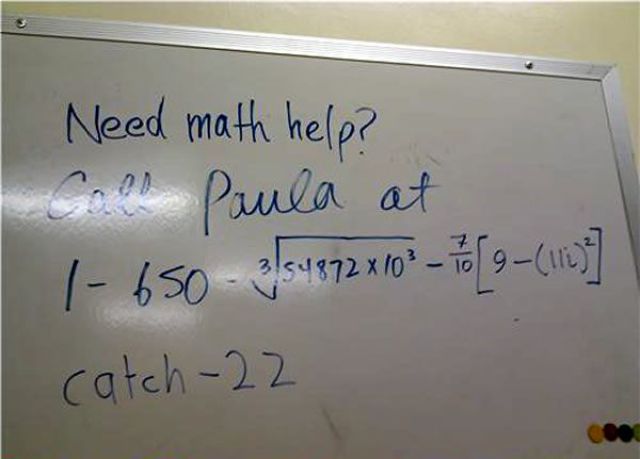 Need math help?
Call Paula at
1-650-∛(54872×10³) - 7/10[9-(11i)²]
catch-22